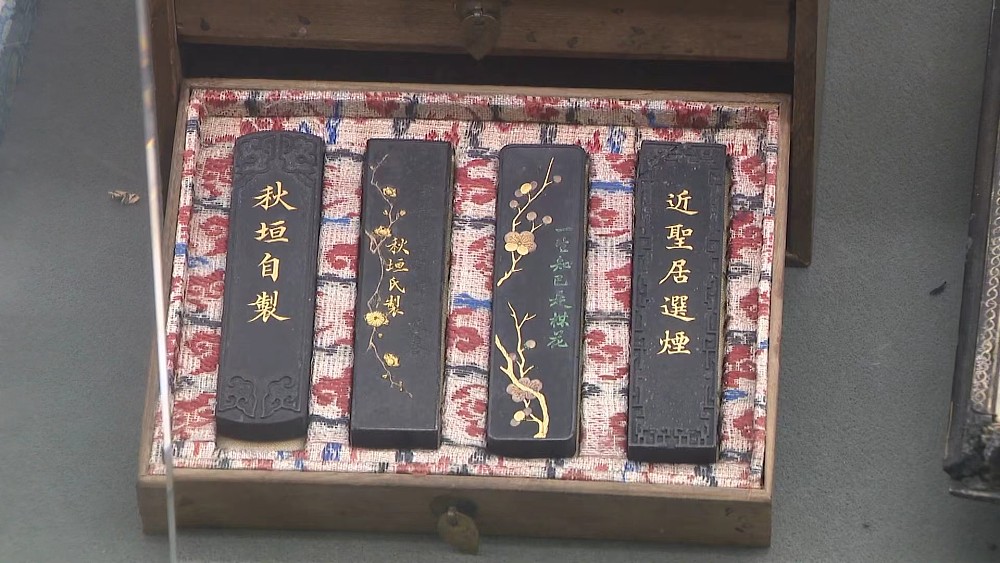 秋垣自製
秋垣氏製
一生知己是楳花
近聖居選煙